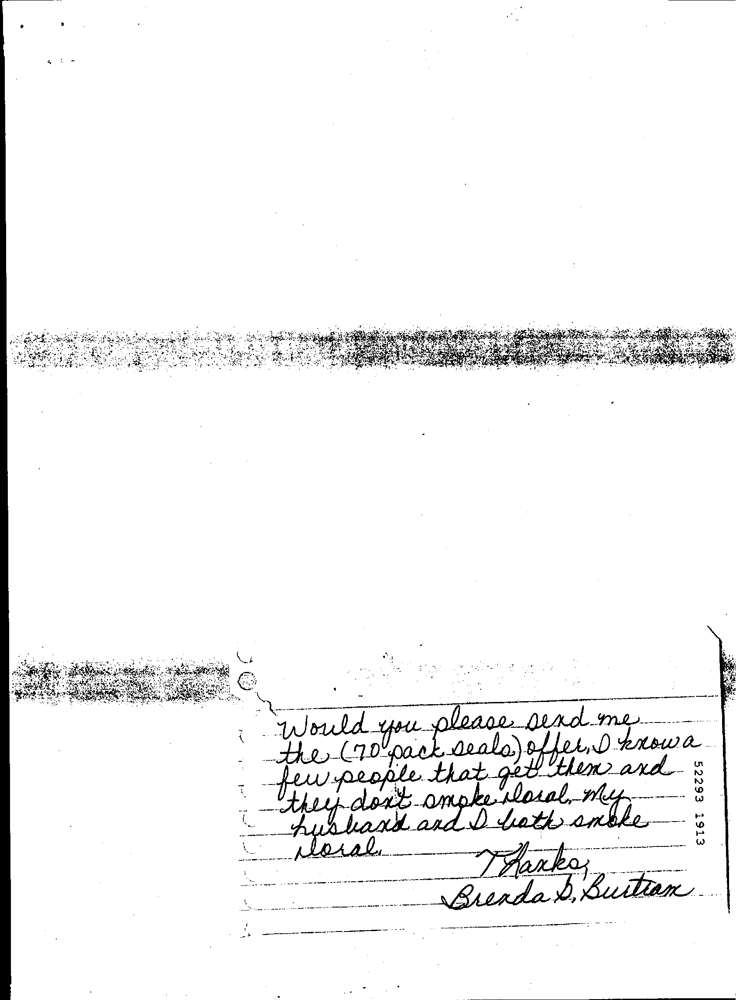 Would you please send me
the (70 pack seals) offer, I know a
few people that get them and
they don't smoke Doral. My
husband and I both smoke
Doral.
Thanks,
Brenda S.
52293 1913